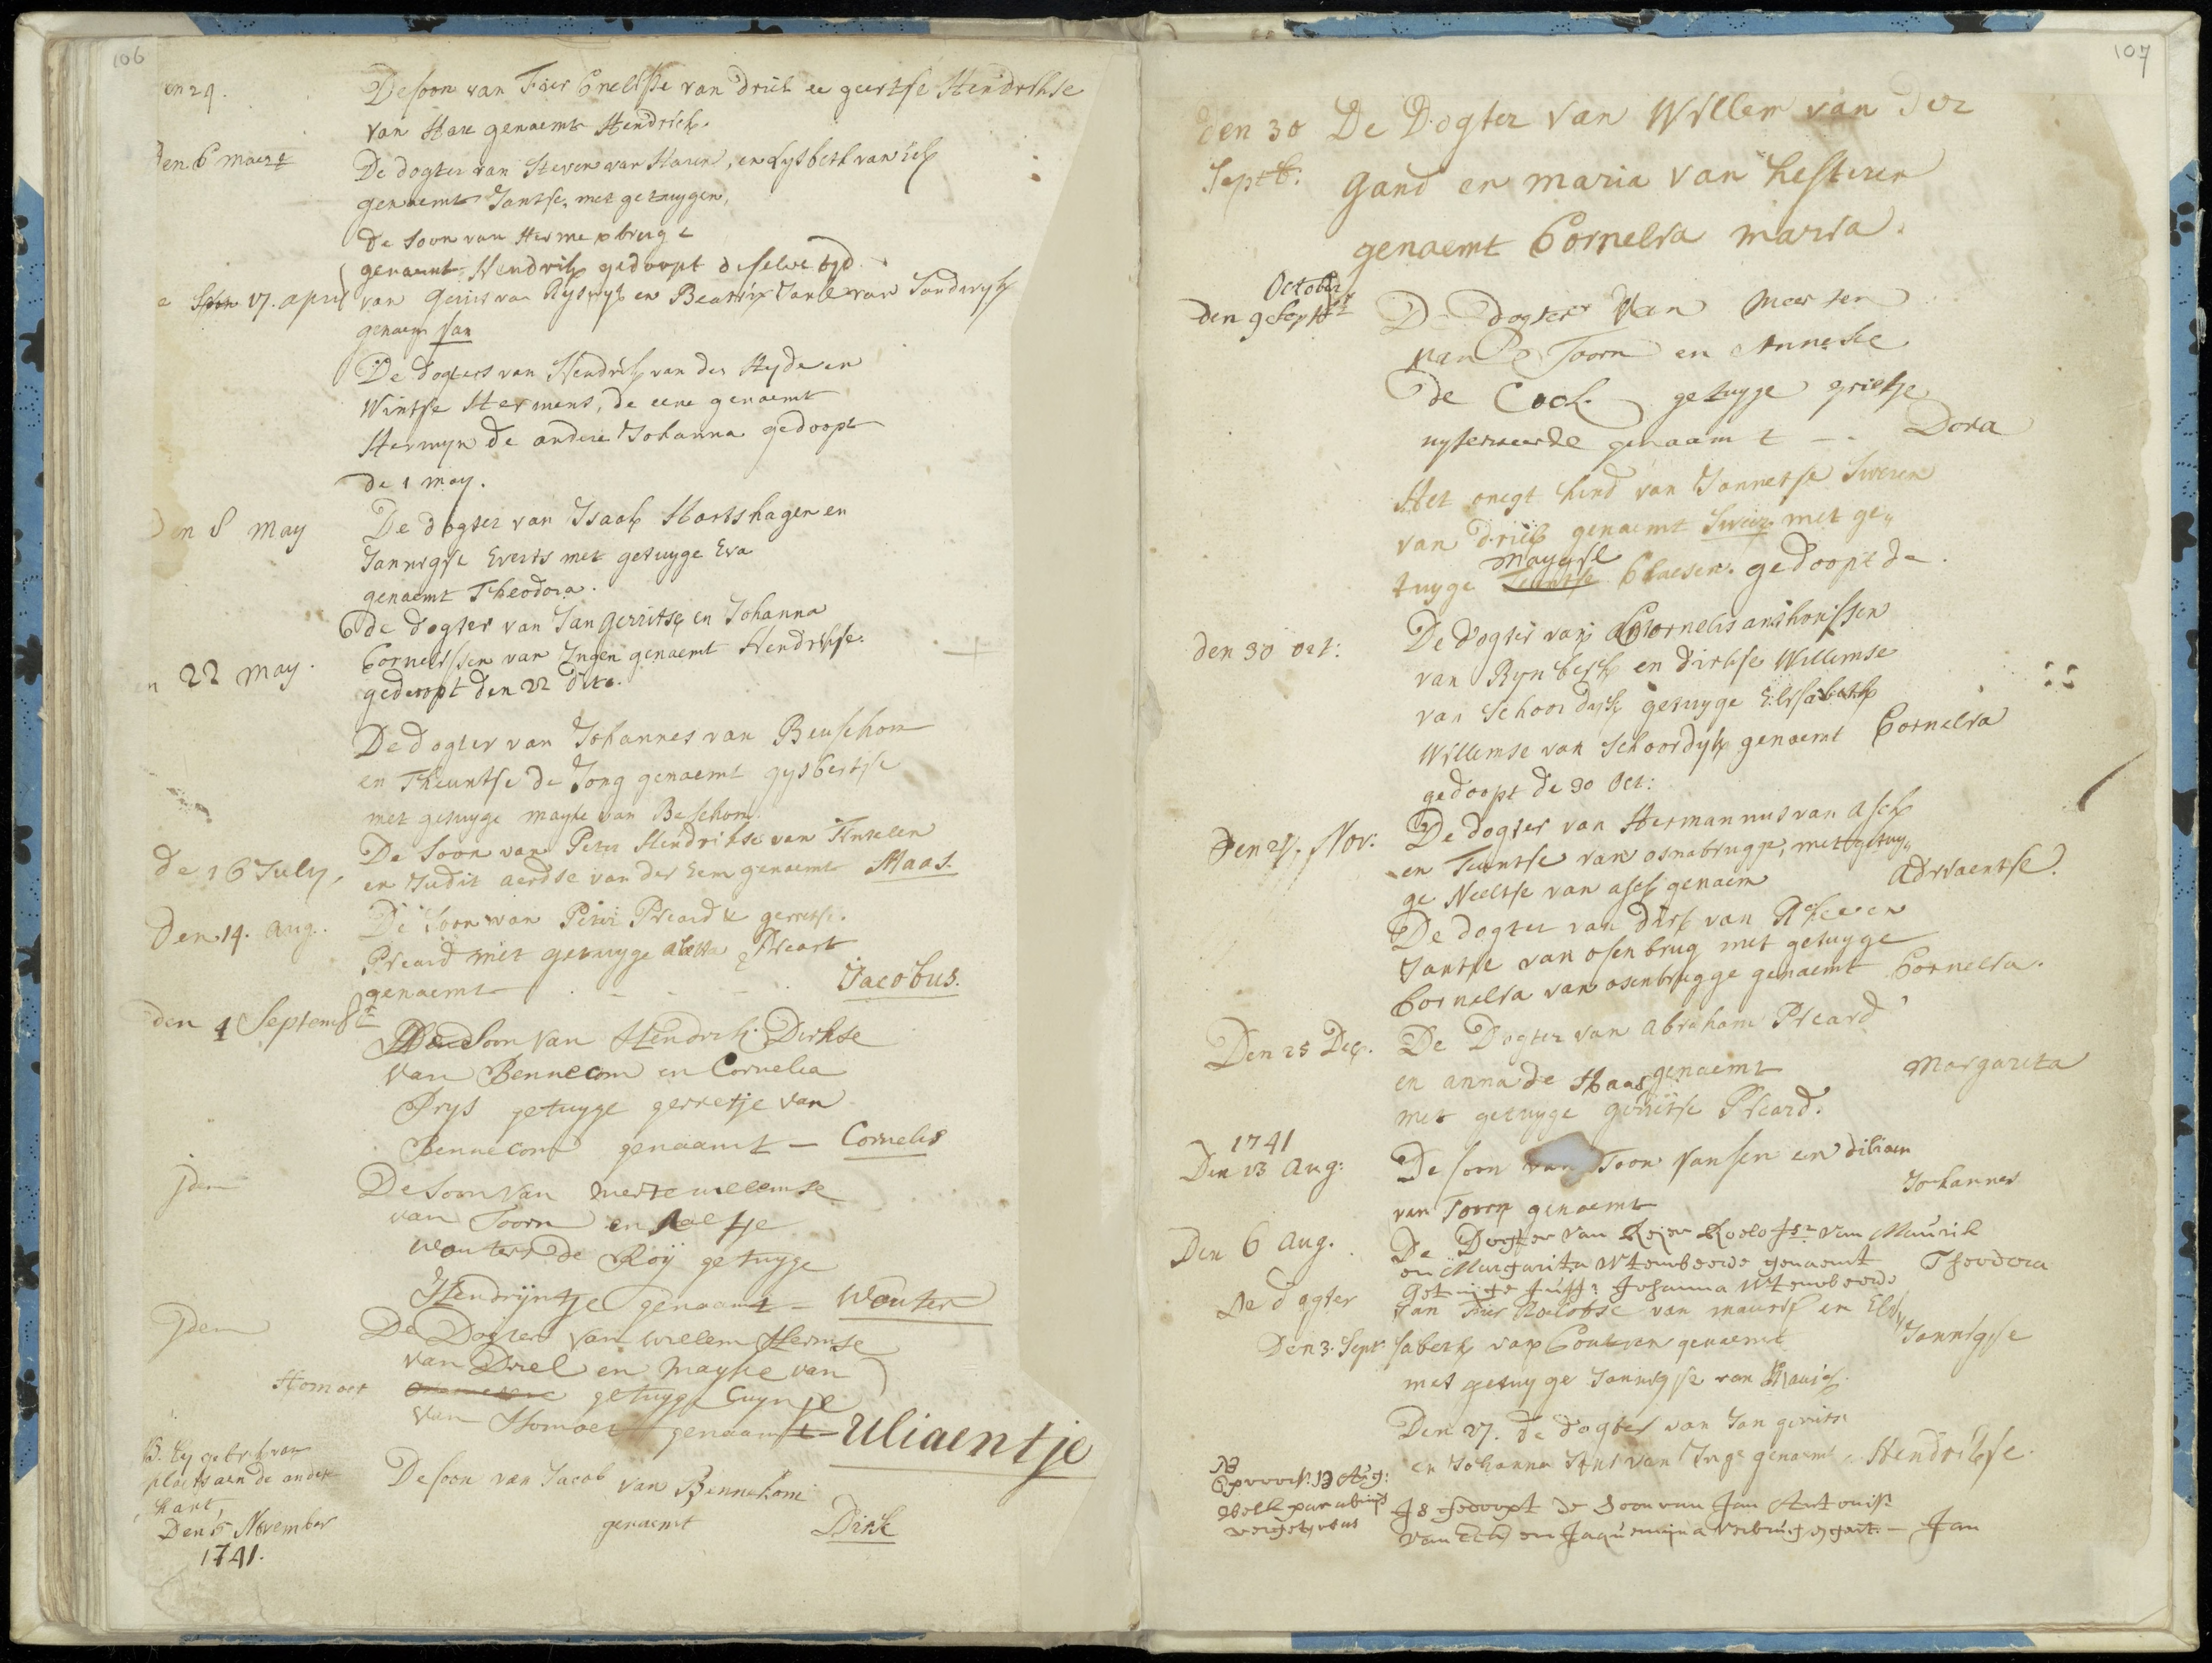 106
en 29. De soon van Tier Cnelisse van driel en geertse Hendrikse
van Hare genaemt Hendrick.
den 6 maert De dogter van Steven van Haren, en Lysbeth van eck
genaemt Jantse, met getuygen,
De soon van Herme brug
genaemt Hendrik gedoopt deselve tyd.
17. april van Gerrit van Ryswyk en Beatrix Jans van Sandwyk
genaem Jan
De dogters van Hendrik van der Heyde en
Wintse Hermens, de eene genaemt
Hermyn de andere Johanna gedoopt
de 1 may.
Den 8 may De dogter van Isaak Hartshagen en
Jannigse Everts met getuyge Eva
genaemt Theodora.
de dogter van Jan gerritse en Johanna
22 may. Cornelissen van Ingen genaemt Hendrikse.
gedoopt den 22 dito.
De dogter van Johannes van Beusekom
en Theuntse de Jong genaemt gysbertse
met getuyge mayke van Besekom.
de 16 July, De Soon van Peter Hendrikse van Tintelen
en Judit aerdse van der Eem genaemt Maas.
Den 14. aug. De soon van Peter Preard & gerretse.
Preard met getuyge aletta Preart
genaemt - - - Jacobus.
den 4 Septemb De Soon van Hendrik Dirkse
van Bennecom en Cornelia
Prys getuyge gerretje van
Bennecom genaamt - Cornelis
jdem De Soon van merte willemse
van Toorn en Aeltje
wouters de Roÿ getuyge
Hendrijntje genaamt - Wouter
Jdem De Dogter van willem Hermse
van Driel en mayke van
Homoet getuyge Cuyntje
van Homoet genaamt - Uliaentje
plaets aen de andere
kant,
De soon van Jacob van Bennekom
Den 5 November genaemt Dirk
1741.
107
den 30 De Dogter van Willem van der
Septb: Gand en maria van hesteren
genaemt Cornelia maria.
October
den 9 Septbr De dogter van Meerten
van Toorn en Anneke
de Cock getuyge grietje
uyterweerde genaamt - - Dora
Het onegt kind van Jannetse Sweren
van driel genaemt Sweer. met ge„
maygse
tuyge Teuntse Claesen. gedoopt de
den 30 oct: De dogter van Cornelis anthonissen
van Rynbeek en dirkse Willemse
van Schoordyk getuyge Elisabeth
Willemse van Schoordyk genaemt Cornelia
gedoopt de 30 Oct:
Den 27. Nov: De dogter van Hermannus van asch
en Teuntse van osnabrugge, met getuy„
ge Neeltse van asch genaem Adriaentse.
De dogter van dirk van
Jantse van osenbrug met getuyge
Cornelia van osenbrugge genaemt Cornelia.
Den 25 Dec. De Dogter van Abraham Preard
en anna de Haas genaemt Margareta
met getuyge gerritse Preard.
1741
Den 13 Aug: De soon van Toon Jansen en diliaen
van Toorn genaemt Johannes
Den 6 Aug. De Dogter van Reijer Roelofsr van Maurik
en Margarita Wtembeerde genaemt Theodora
Getuijge Juffr Johanna Wtembeerde
De dogter van Tier Roelofse van maurik en Eli„
Den 3. Sept. sabeth van Couteren genaemt Jannigse
met getuyge Jannigse van Maurik.
Den 27. de dogter van Jan gerrits
en Johanna van Inge genaemt Hendrikse.
NB
13 Aug: Is gedoopt de soon van Jan Antonisz
van Eck en Jaquemijna Verbrug gent. - Jan